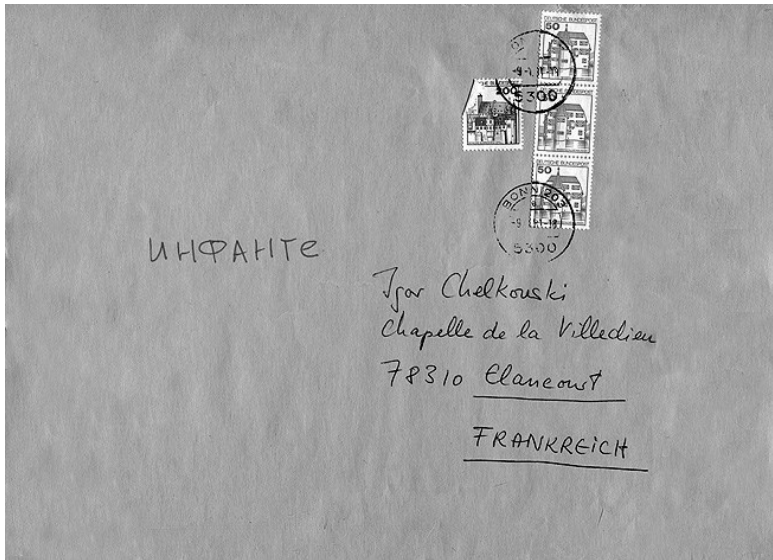 DEUTSCHE BUNDESPOST
50
5300
200
DEUTSCHE BUNDESPOST
50
BONN 203
5300
ИНФАНТЕ
Igor Chelkowski
Chapelle de la Villedieu
78310 Elancourt
FRANKREICH